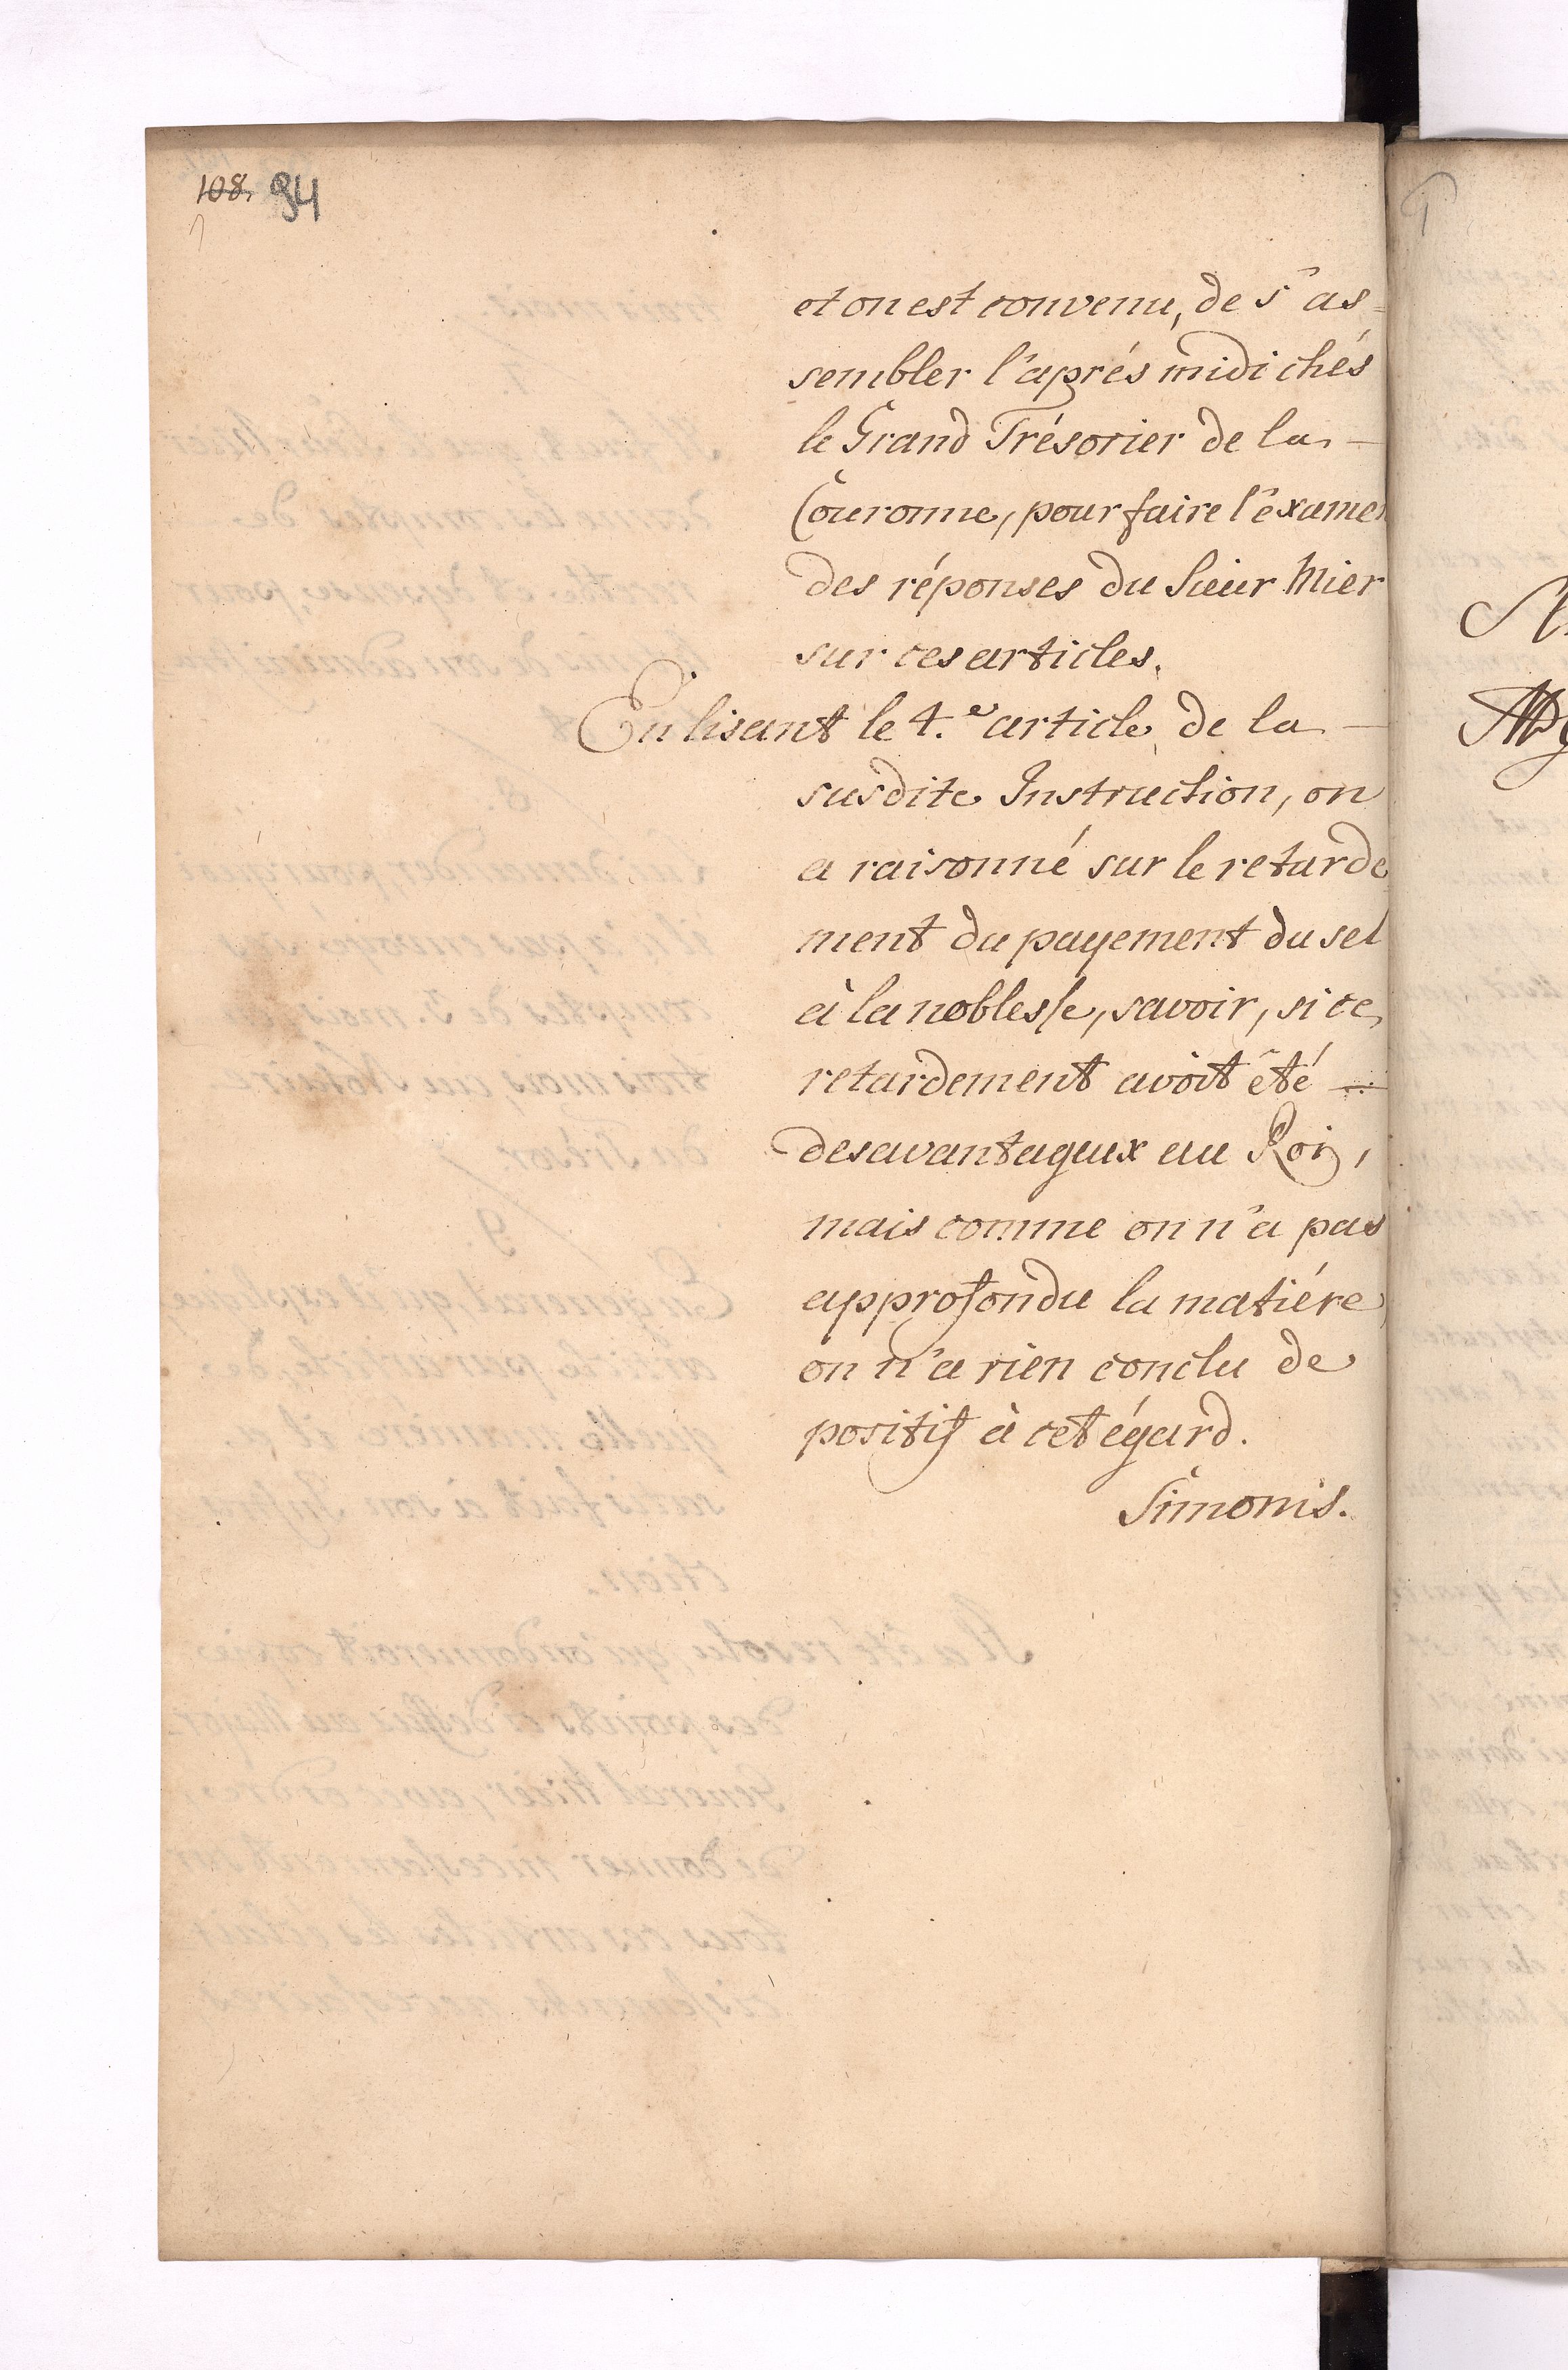 108. 94
et on est convenu, de s'as=
sembler l'aprés midi chés
le Grand Trésorier de la
Couronne, pour faire l'éxamen
des réponses du Sieur Mier
sur ces articles.
En lisant le 4.e article de la
susdite Instruction, on
a raisonné sur le retarde
ment du payement du sel
à la noblesse, savoir, si ce
retardement avoit été
desavantageux au Roi,
mais comme on n'a pas
approfondu la matiére,
on n'a rien conclu de
positif à cet égard.
Simonis.